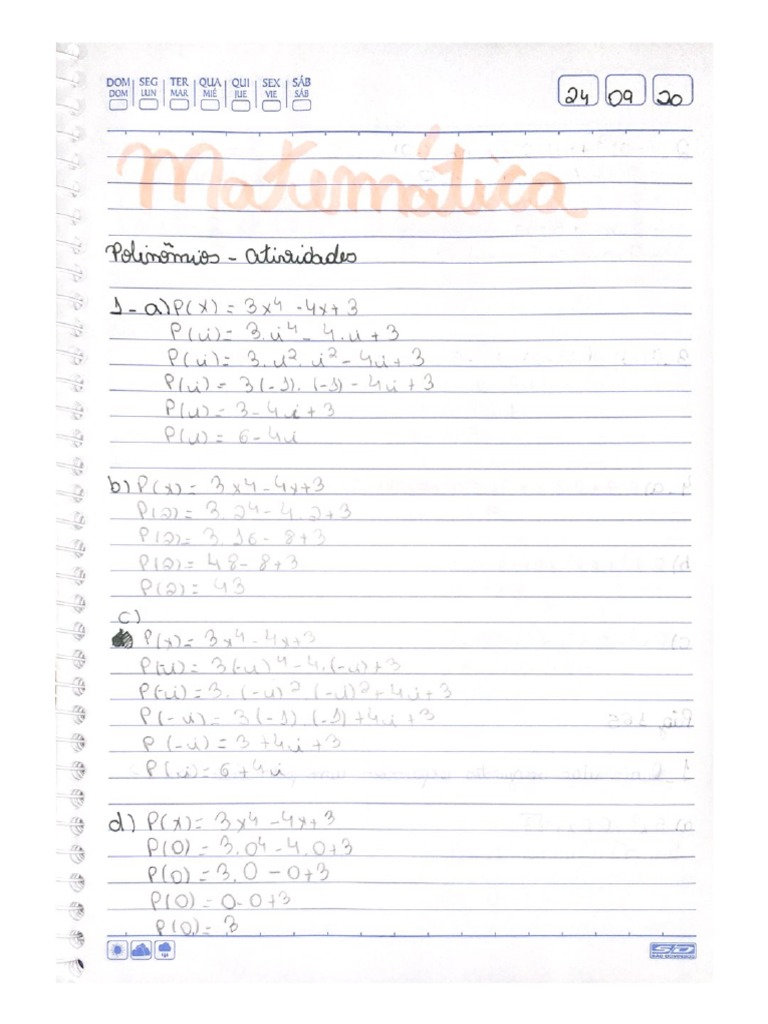 DOM SEG TER QUA QUI SEX SÁB
DOM LUN MAR MIÉ JUE VIE SÁB
24 09 20
Matemática
Polinômios - atividades
1- a) P(x) = 3x⁴ - 4x + 3
P(i) = 3.i⁴ - 4.i + 3
P(i) = 3.i². i² - 4i + 3
P(i) = 3(-1). (-1) - 4i + 3
P(i) = 3 - 4i + 3
P(i) = 6 - 4i
b) P(x) = 3x4 - 4x + 3
P(2) = 3.2⁴ - 4.2 + 3
P(2) = 3.16 - 8 + 3
P(2) = 48 - 8 + 3
P(2) = 43
c)
P(x) = 3x⁴ - 4x + 3
P(-i) = 3(-i)⁴ - 4.(-i) + 3
P(-i) = 3. (-i)². (-i)² + 4i + 3
P(-i) = 3(-1). (-1) + 4i + 3
P(-i) = 3 + 4i + 3
P(i) = 6 + 4i
d) P(x) = 3x⁴ - 4x + 3
P(0) = 3.0⁴ - 4.0 + 3
P(0) = 3.0 - 0 + 3
P(0) = 0 - 0 + 3
P(0) = 3
SD